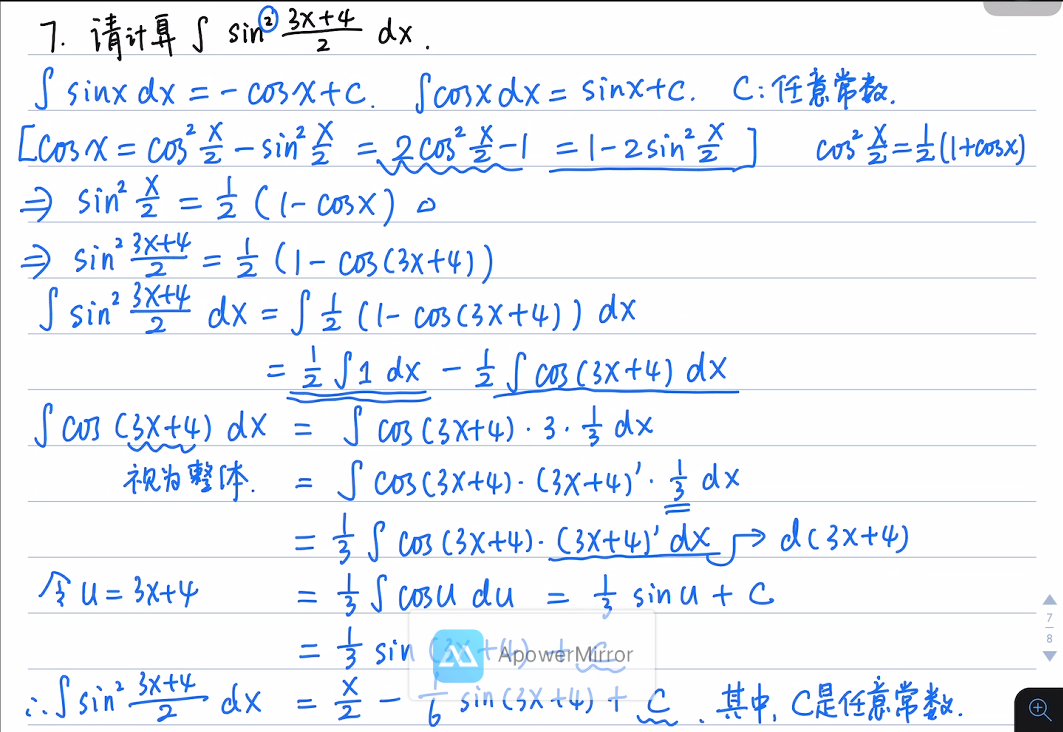 7. 请计算 ∫ sin² (3x+4)/2 dx.
∫ sinx dx = - cosx + C. ∫cosx dx = sinx + C. C:任意常数.
[cosx = cos² x/2 - sin² x/2 = 2cos² x/2 - 1 = 1 - 2sin² x/2 ] cos² x/2 = 1/2 (1+cosx)
⇒ sin² x/2 = 1/2 (1 - cosx)
⇒ sin² (3x+4)/2 = 1/2 (1 - cos(3x+4))
∫ sin² (3x+4)/2 dx = ∫ 1/2 (1 - cos(3x+4)) dx
= 1/2 ∫ 1 dx - 1/2 ∫ cos(3x+4) dx
∫ cos (3x+4) dx = ∫ cos(3x+4) · 3 · 1/3 dx
视为整体. = ∫ cos(3x+4) · (3x+4)′ · 1/3 dx
= 1/3 ∫ cos(3x+4) · (3x+4)′ dx → d(3x+4)
令 u = 3x+4 = 1/3 ∫ cosu du = 1/3 sinu + C
= 1/3 sin (3x+4) + C
ApowerMirror
∴ ∫ sin² (3x+4)/2 dx = x/2 - 1/6 sin(3x+4) + C . 其中, C是任意常数.
7
8